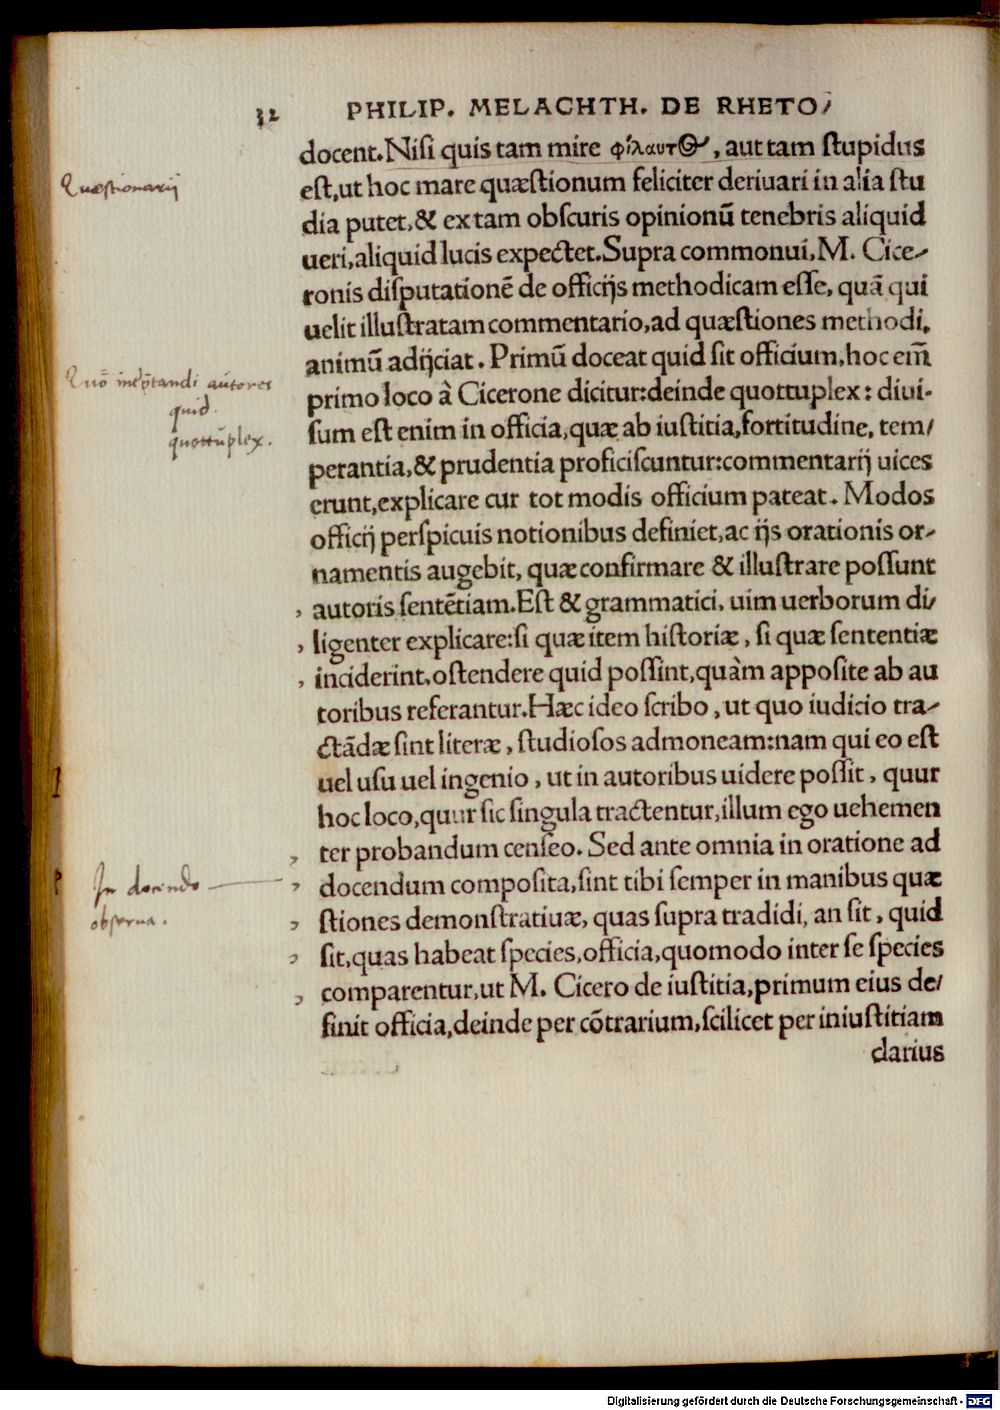 32 PHILIP. MELACHTH. DE RHETO/
docent.Niſi quis tam mire φίλαυτος, aut tam ſtupidus
Quæstionarij
eſt,ut hoc mare quæſtionum feliciter deriuari in alia ſtu
dia putet,& ex tam obſcuris opinionū tenebris aliquid
ueri,aliquid lucis expectet.Supra commonui,M. Cice-
ronis diſputationē de officijs methodicam eſſe, quā qui
uelit illuſtratam commentario,ad quæſtiones methodi,
animū adijciat. Primū doceat quid ſit officium,hoc em̄
autores
primo loco à Cicerone dicitur:deinde quottuplex: diui-
quid.
ſum eſt enim in officia,quæ ab iuſtitia,fortitudine, tem/
quottuplex.
perantia,& prudentia proficiſcuntur:commentarij uices
erunt,explicare cur tot modis officium pateat. Modos
officij perſpicuis notionibus definiet,ac ijs orationis or-
namentis augebit, quæ confirmare & illuſtrare poſſunt
autoris ſentētiam.Eſt & grammatici, uim uerborum di/
ligenter explicare:ſi quæ item hiſtoriæ, ſi quæ ſententiæ
inciderint,oſtendere quid poſſint,quàm appoſite ab au
toribus referantur.Hæc ideo ſcribo, ut quo iudicio tra-
ctādæ ſint literæ, ſtudioſos admoneam:nam qui eo eſt
uel uſu uel ingenio, ut in autoribus uidere poſſit, quur
hoc loco,quur ſic ſingula tractentur,illum ego uehemen
ter probandum cenſeo. Sed ante omnia in oratione ad
In docendo
docendum compoſita,ſint tibi ſemper in manibus quæ
obserua.
ſtiones demonſtratiuæ, quas ſupra tradidi, an ſit, quid
ſit,quas habeat ſpecies,officia,quomodo inter ſe ſpecies
comparentur,ut M. Cicero de iuſtitia,primum eius de/
finit officia,deinde per cōtrarium,ſcilicet per iniuſtitiam
clarius
Digitalisierung gefördert durch die Deutsche Forschungsgemeinschaft - DFG